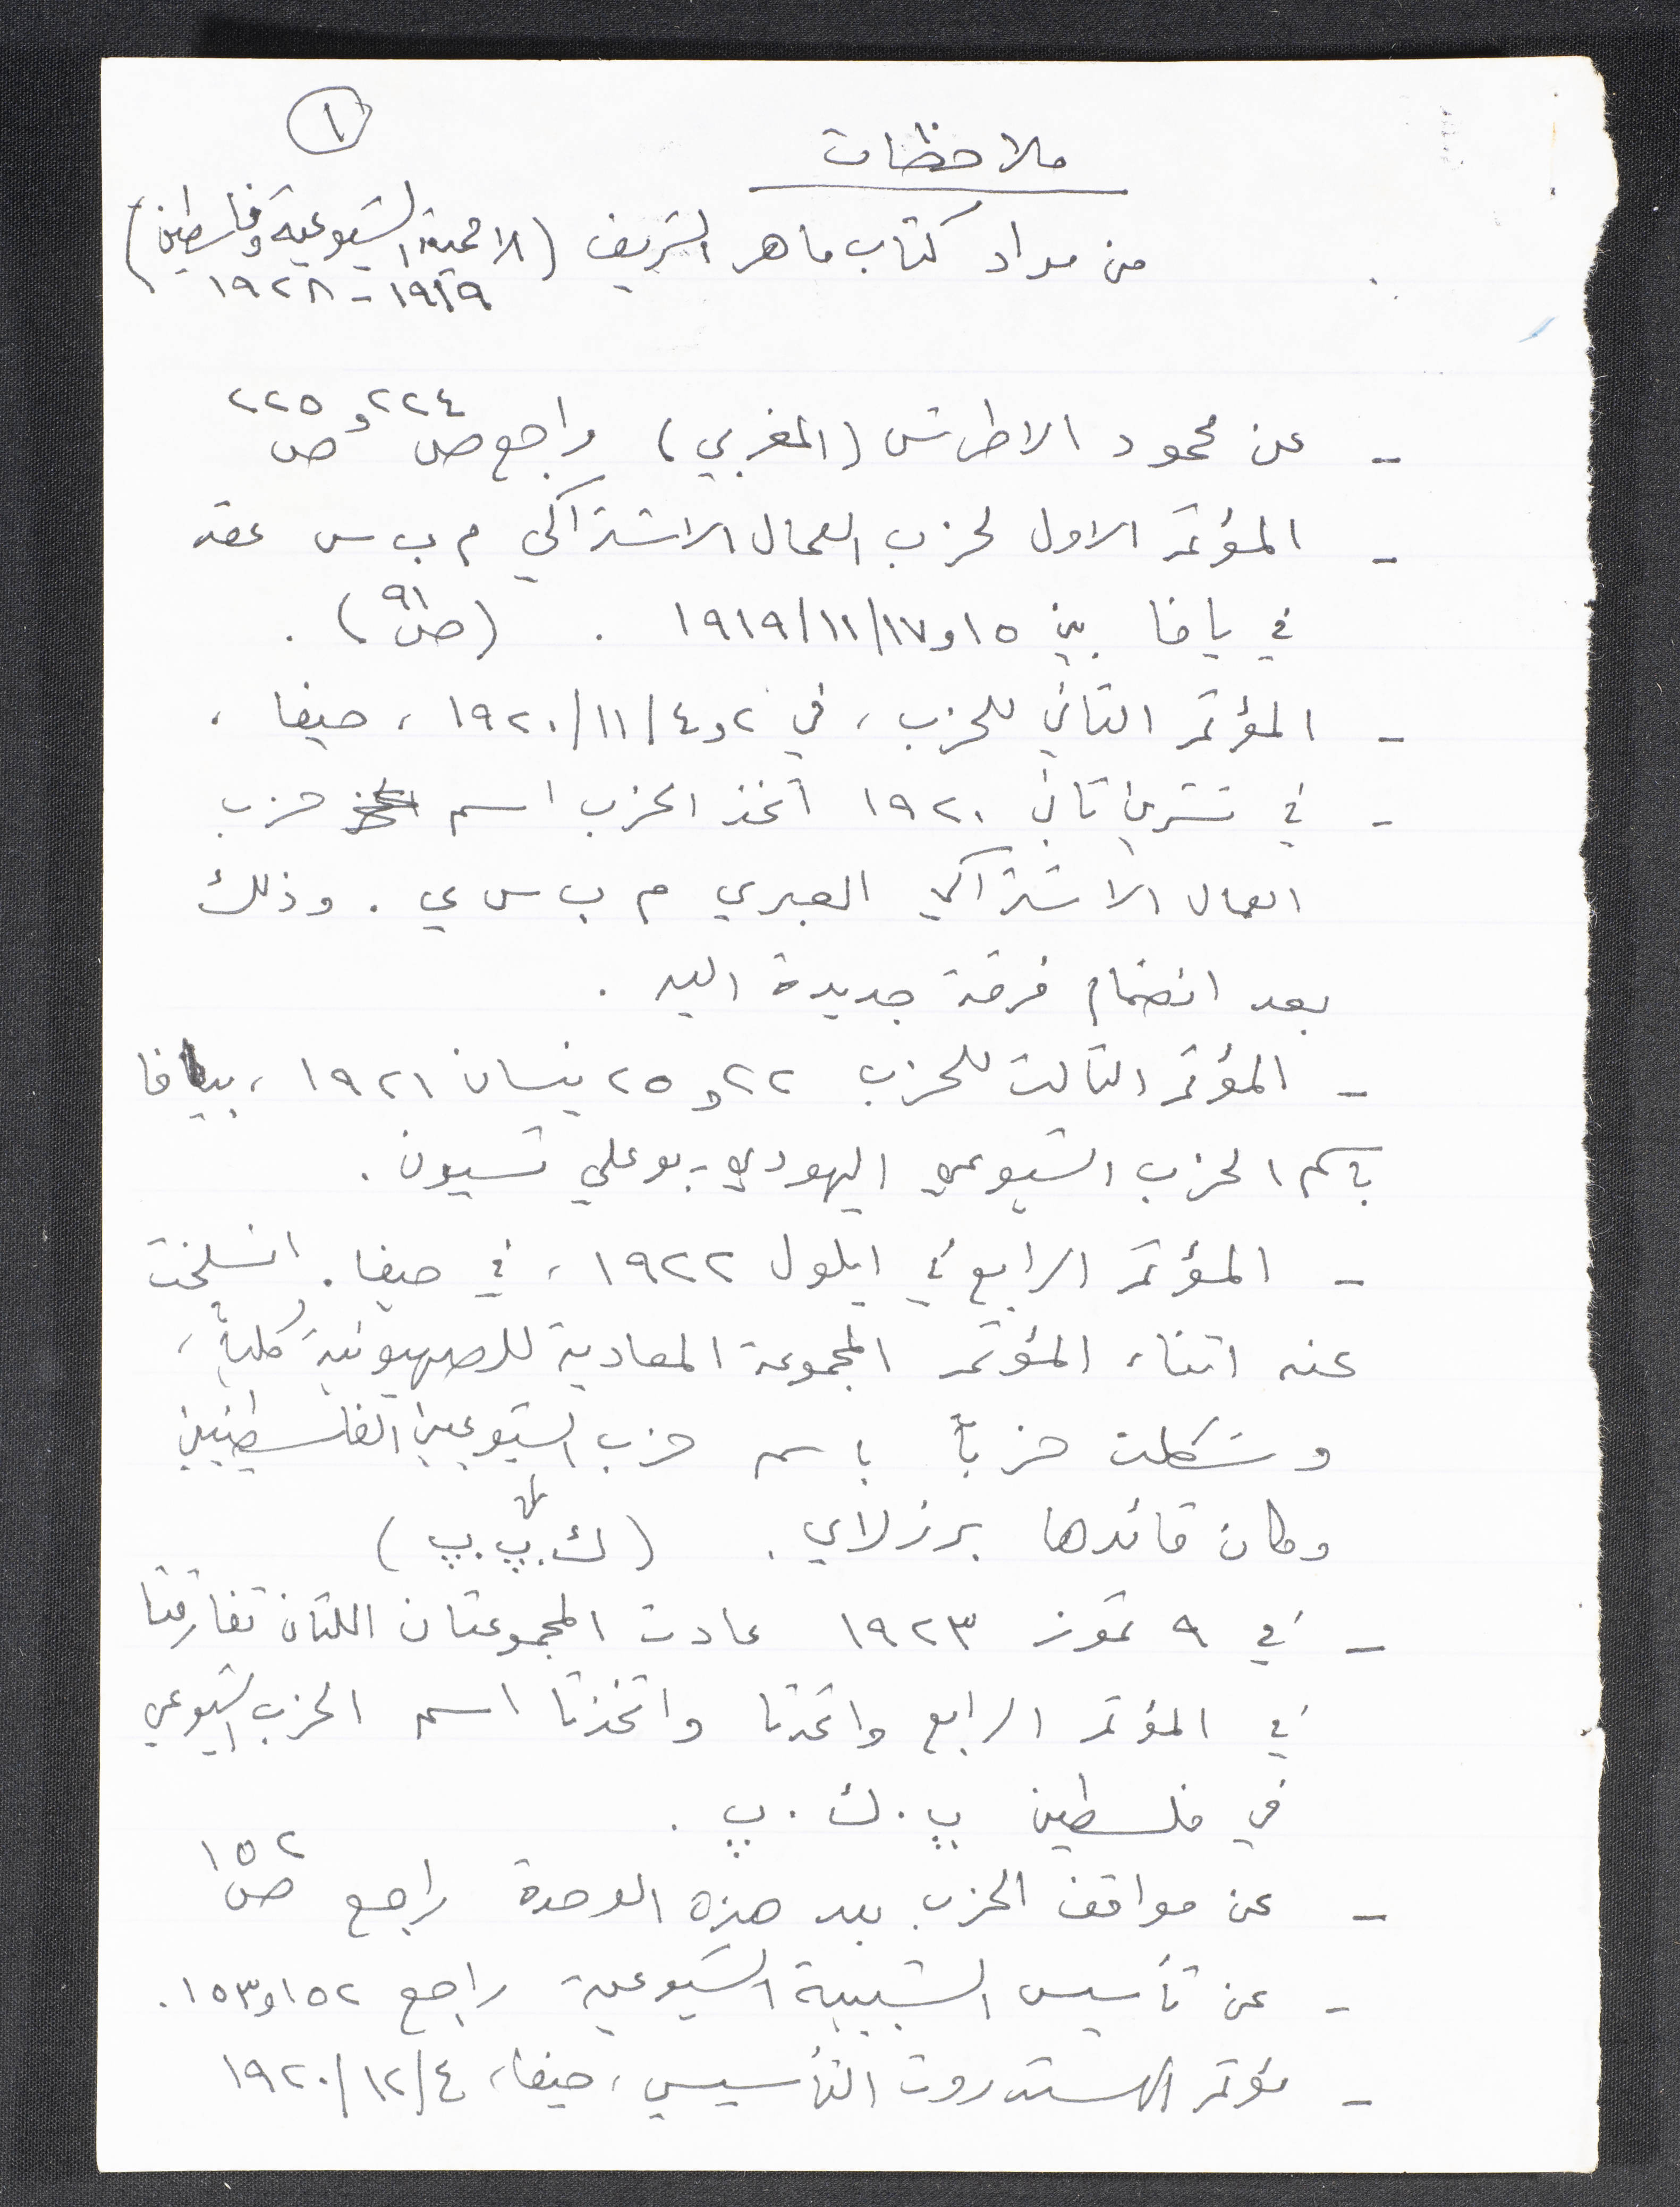 ١
ملاحظات
من مواد كتاب ماهر الشريف (الاممية الشيوعية وفلسطين)
١٩١٩ - ١٩٢٨
- عن محمود الاطرش (المغربي) راجع ص ٢٢٤ و ص ٢٢٥
- المؤتمر الاول لحزب العمال الاشتراكي م ب س عقد
في يافا بين ١٥ و١٧/١١/١٩١٩ . (ص ٩١) .
- المؤتمر الثاني للحزب ، في ٢ و٤/١١/١٩٢٠ ، حيفا ،
- في تشرين ثاني ١٩٢٠ اتخذ الحزب اسم حزب
العمال الاشتراكي العبري م ب س ي . وذلك
بعد انضمام فرقة جديدة اليه .
- المؤتمر الثالث للحزب ٢٢ و٢٥ نيسان ١٩٢١ ، بيافا
باسم الحزب الشيوعي اليهودي - بوعلي تسيون .
- المؤتمر الرابع في ايلول ١٩٢٢ ، في حيفا . انسلخت
عنه اثناء المؤتمر المجموعة المعادية للصهيونية كلياً ،
وشكلت حزباً باسم حزب الشيوعيين الفلسطينيين
وكان قائدها برزلاي . (ك . پ . پ)
- في ٩ تموز ١٩٢٣ عادت المجموعتان اللتان تفارقتا
في المؤتمر الرابع واتحدتا واتخذتا اسم الحزب الشيوعي
في فلسطين پ . ك . پ .
- عن مواقف الحزب بعد هذه الوحدة راجع ص ١٥٢
- عن تأسيس الشبيبة الشيوعية راجع ١٥٢ و١٥٣ .
- مؤتمر الهستدروت التأسيسي ، حيفا ، ٤/١٢/١٩٢٠